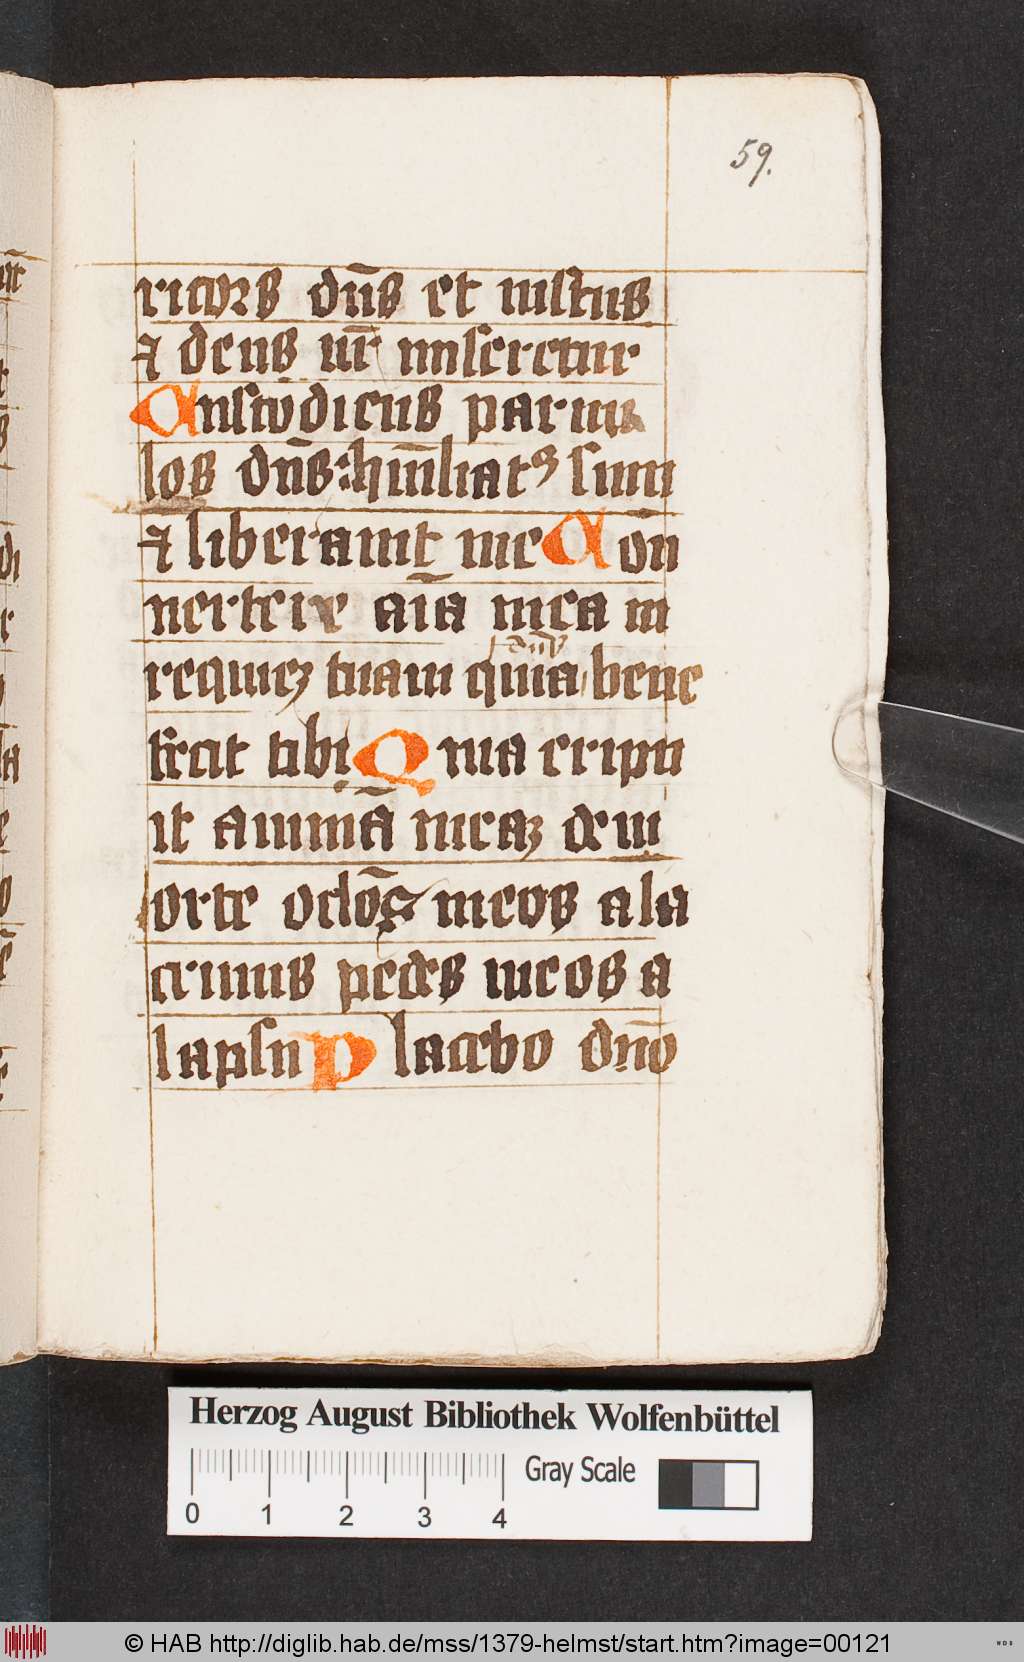 59.
ricors dn̄s et iustus
⁊ deus nr̄ miseretur
Custodiens paruu
los dn̄s : hūiliatꝰ sum
⁊ liberauit me Con
uertere aīa mea in
requiē tuam quia dn̄s bene
fecit tibi Quia eripu
it animā meaꝫ de m
orte oclōs meos a la
crimis pedes meos a
lapsu Placebo dn̄o
Herzog August Bibliothek Wolfenbüttel
0 1 2 3 4
Gray Scale
© HAB http://diglib.hab.de/mss/1379-helmst/start.htm?image=00121